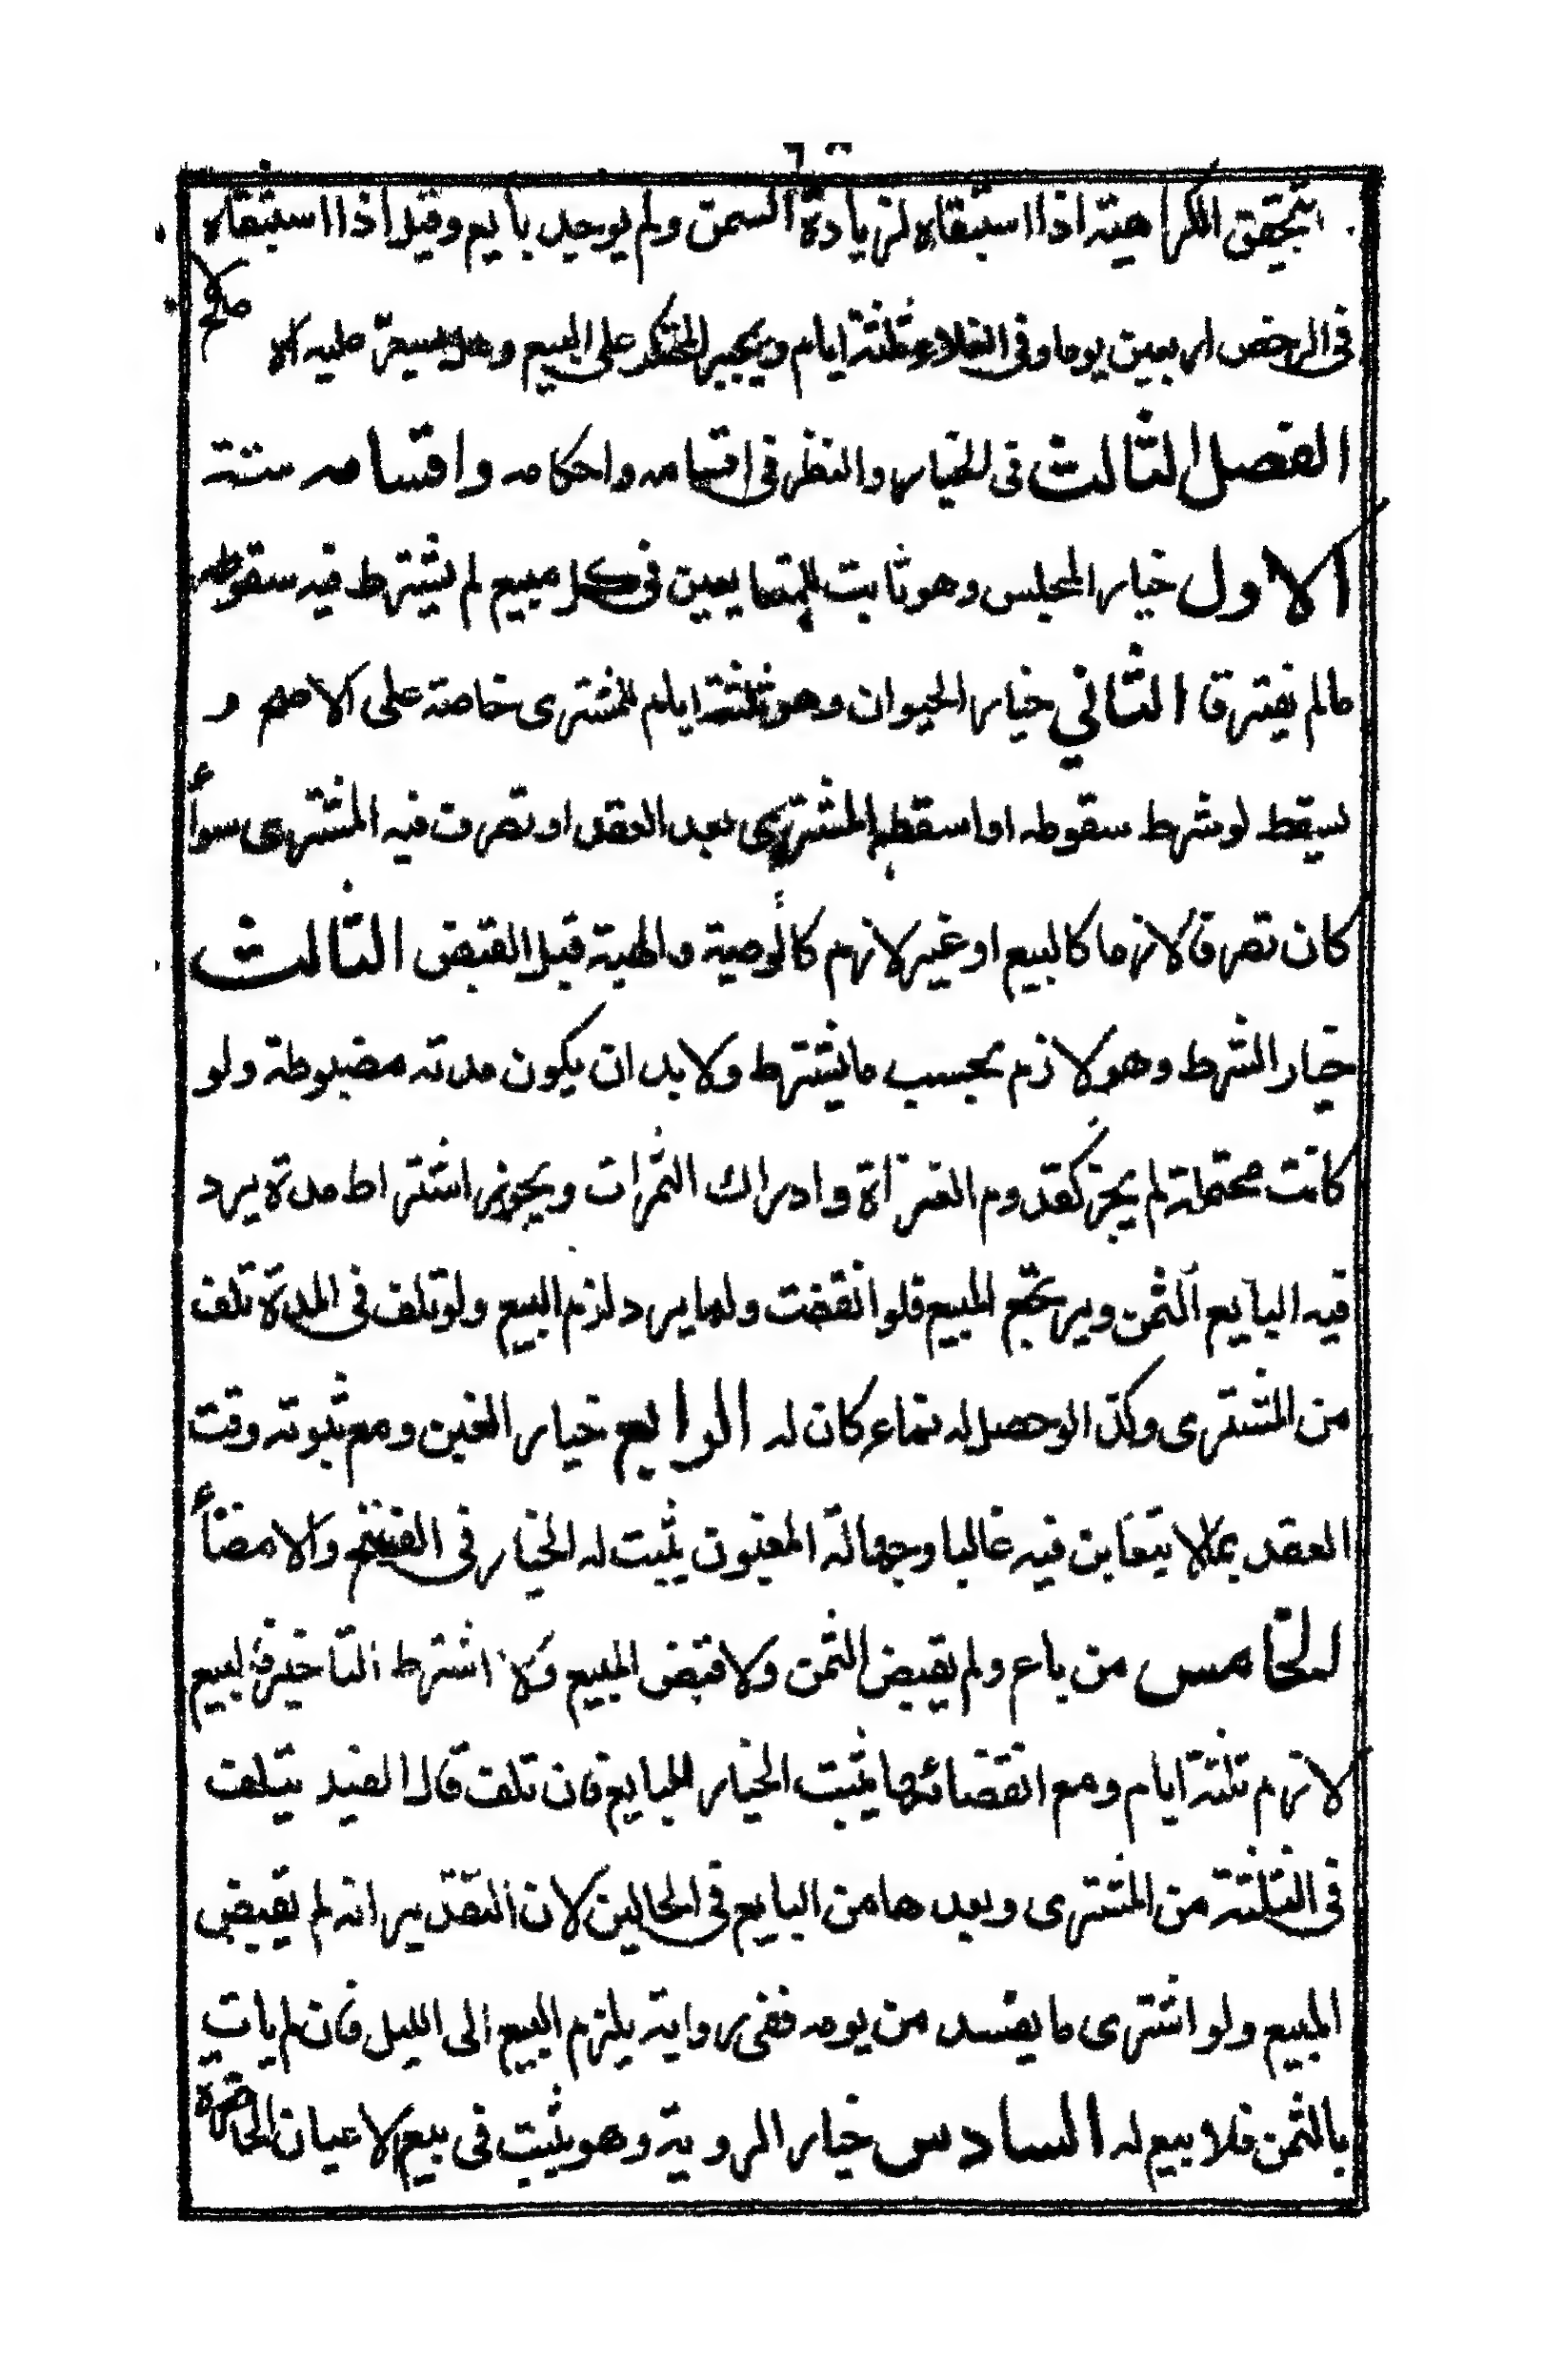 يتحقق الكراهية اذا استبقاه لزيادة الثمن ولم يوجد بايع وقيل اذا استبقاه
فى الرخص اربعين يوما وفى الغلاء ثلثة ايام ويجبر المحتكر على البيع وهل يسعر عليه الا
صح لا
الفصل الثالث فى الخيار والنظر فى اقسامه واحكامه واقسامه ستة
الاول خيار المجلس وهو ثابت للمتبايعين فى كل مبيع لم يشترط فيه سقوطه
مالم يفترقا الثاني خيار الحيوان وهو ثلثة ايام للمشترى خاصة على الاصح و
يسقط لو شرط سقوطه او اسقطه المشترى بعد العقد او تصرف فيه المشترى سواء
كان تصرفا لازما كالبيع او غير لازم كالوصية والهبة قبل القبض الثالث
خيار الشرط وهو لازم بحسب ما يشترط ولا بد ان يكون مدته مضبوطة ولو
كانت محتملة لم يجز كقدوم الغزاة وادراك الثمرات ويجوز اشتراط مدة يرد
فيه البايع الثمن ويرتجع المبيع فلو انقضت ولما يرد لزم البيع ولو تلف فى المدة تلف
من المشترى وكذا لو حصل له نماء كان له الرابع خيار الغبن ومع ثبوته وقت
العقد بما لا يتغابن فيه غالبا وجهالة المغبون يثبت له الخيار فى الفسخ والامضاء
الخامس من باع ولم يقبض الثمن ولا قبض المبيع ولا اشترط التاخير فالبيع
لازم ثلثة ايام ومع انقضائها يثبت الخيار للبايع فان تلف قال المفيد يتلف
فى الثلثة من المشترى وبعدها من البايع فى الحالين لان التقدير انه لم يقبض
المبيع ولو اشترى ما يفسد من يومه ففى رواية يلزم البيع الى الليل فان لم يات
بالثمن فلا بيع له السادس خيار الروية وهو يثبت فى بيع الاعيان الحاضرة